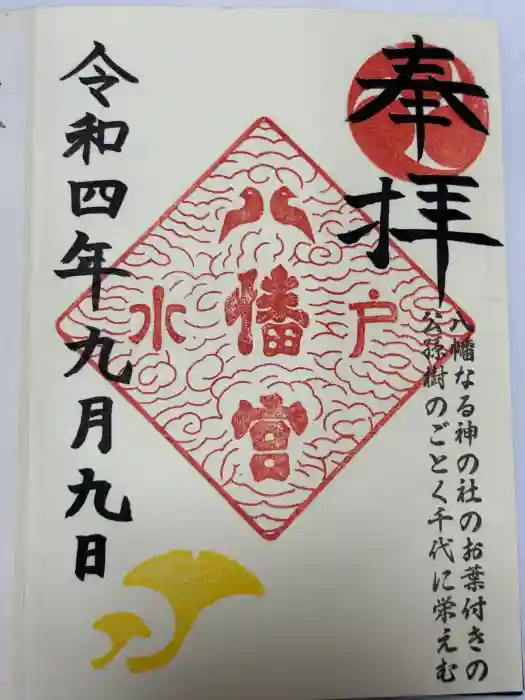 奉拝
八幡なる神の社のお葉付きの
公孫樹のごとく千代に栄えむ
水戸
八幡宮
令和四年九月九日